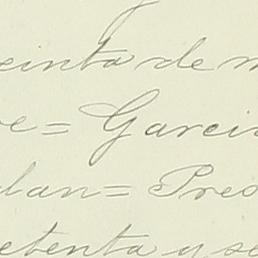 einta de m
e= Garcia
lan= Pres
etenta y se